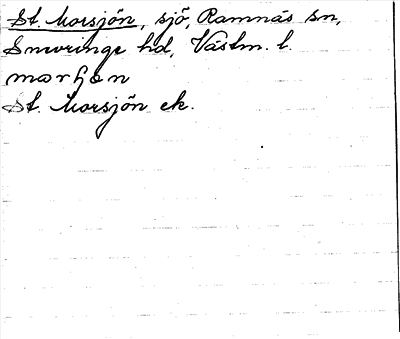 St. Morsjön, sjö, Ramnäs sn,
Snevringe hd, Västm. l.
marʃɔn
St. Morsjön ek.